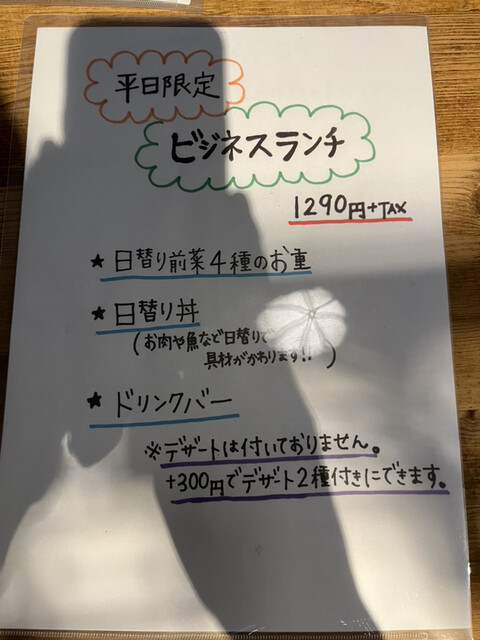 平日限定
ビジネスランチ
1290円+TAX
★日替り前菜4種のお重
★日替り丼
(お肉や魚など日替りで
具材がかわります!!)
★ドリンクバー
※デザートは付いておりません。
+300円でデザート2種付きにできます。